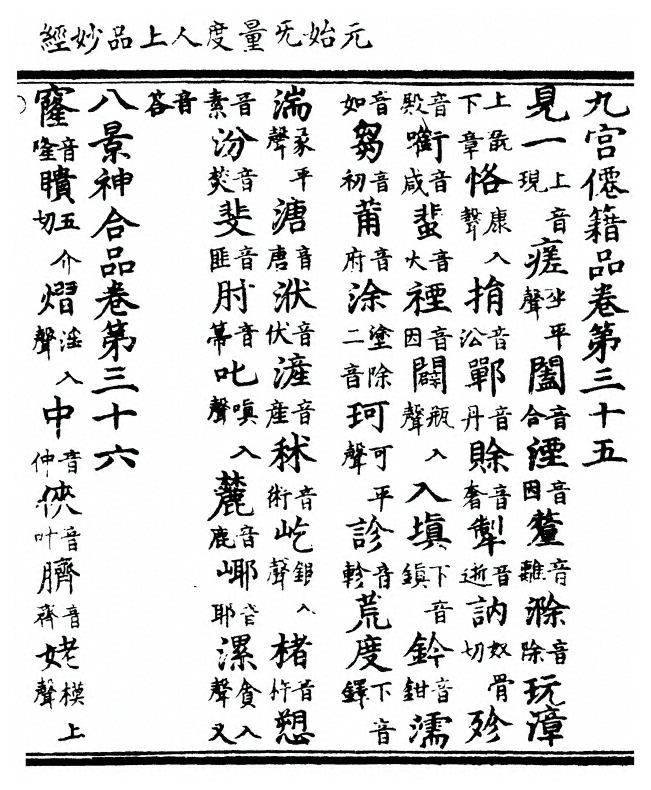 元始旡量度人上品妙經
九宮僊籍品卷第三十五
見一上音現瘥坐平聲闔音合湮音因釐音離滁音除玩漳
上翫下章恪康入聲捐音㳂鄲音丹賒音奢音逝訥奴骨切殄
音殿銜音咸音大禋音因闢瓶入聲入塡下音鎮鈐音鉗濡
音如芻音初莆音府涂塗除二音珂可平聲診音軫荒度下音鐸
湍彖平聲溏音唐洑音伏滻音產秫音術屹銀入聲楮音杵愬
音素汾音焚斐音匪肘音帚叱嗔入聲麓音鹿音耶漯貪入聲又
音荅
八景神合品卷第三十六
窿音隆聵五介切熠淫入聲中音仲俠音叶臍音齊姥模上聲